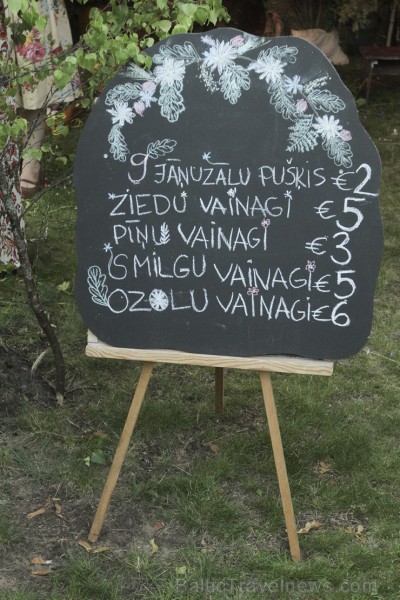 9 JĀŅUZĀĻU PUŠĶIS €2
ZIEDU VAINAGI €5
PĪŅU VAINAGI €3
SMILGU VAINAGI €5
OZOLU VAINAGI €6
BalticTravelnews.com